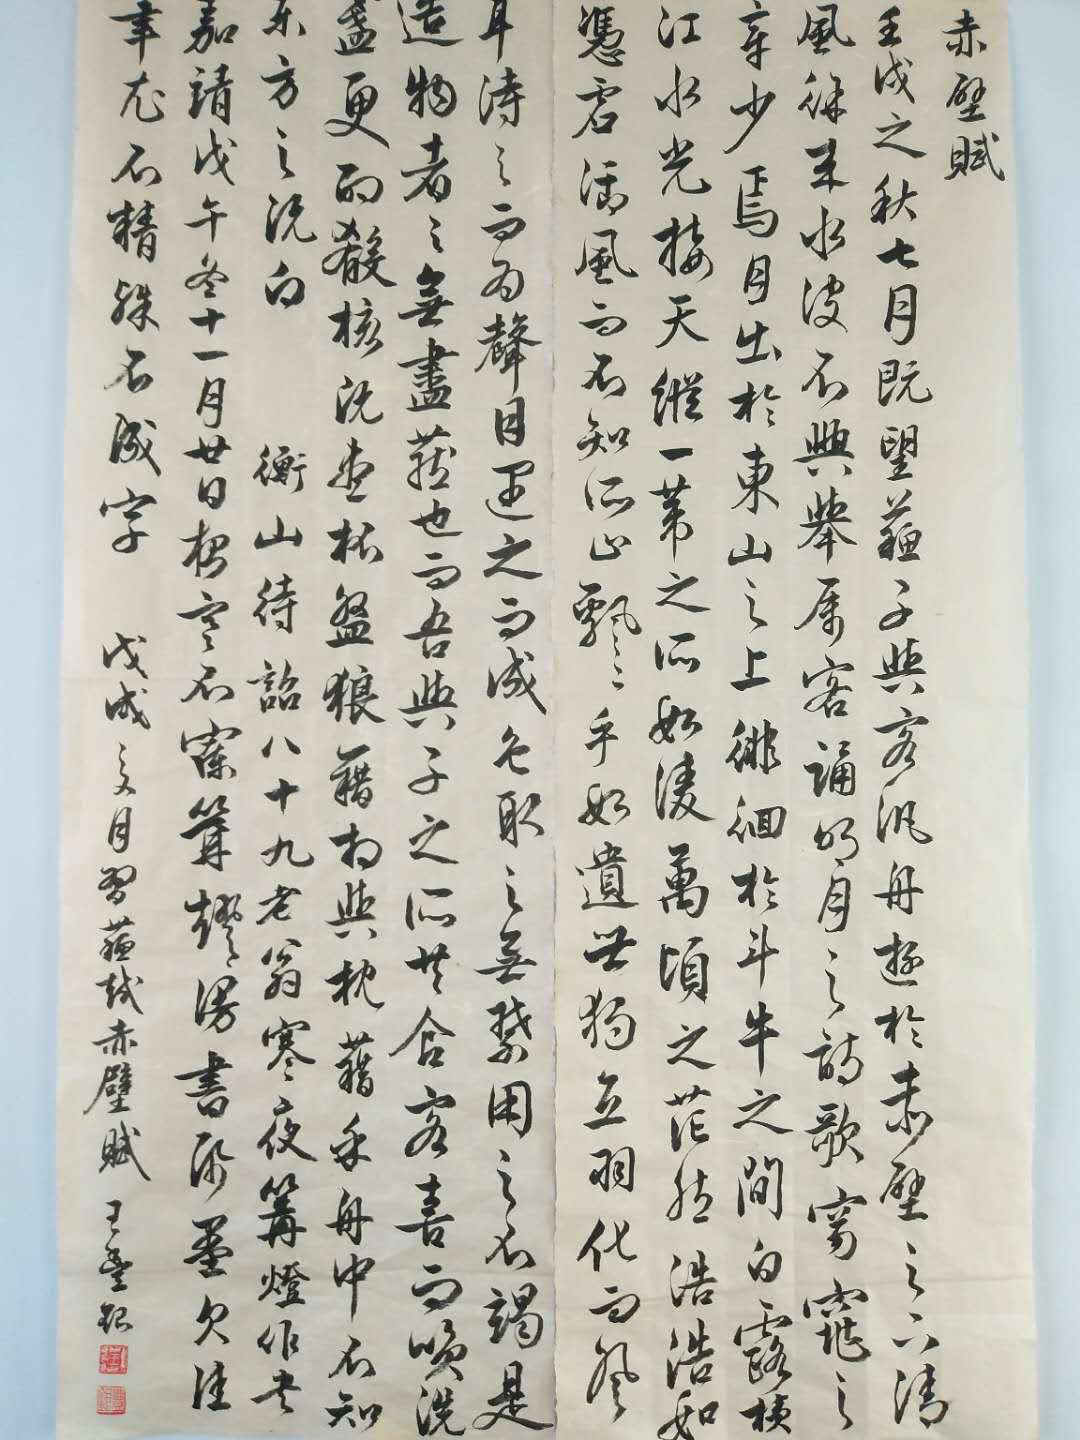 赤壁賦
壬戌之秋七月既望蘇子與客汎舟遊於赤壁之下清
風徐來水波不興舉属客誦明月之詩歌窈窕之
章少焉月出於東山之上徘徊於斗牛之間白露横
江水光接天縱一葦之所如凌萬頃之茫然浩浩如
憑虚御風而不知所止飄々乎如遺世獨立羽化而登
耳得之而為聲目遇之而成色取之無禁用之不竭是
造物者之無盡藏也而吾與子之所共食客喜而笑洗
盞更酌殽核既盡杯盤狼藉相與枕藉乎舟中不知
東方之既白
衡山待詔八十九老翁寒夜篝燈作是
嘉靖戊午冬十一月廿日楷寒不寐篝燈漫書所墨欠佳
筆尤不精殊不成字
戊戌之月習蘇軾赤壁賦